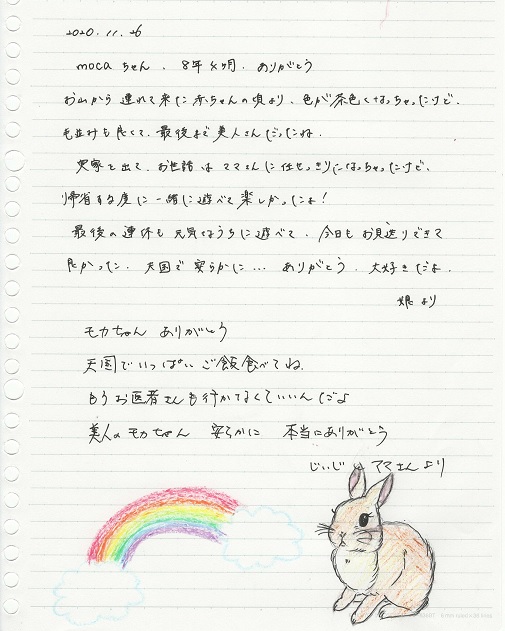 2020.11.26
mocaちゃん、8年4ヶ月、ありがとう
お山から連れて来た赤ちゃんの頃より、色が茶色くなっちゃったけど、
毛並みも良くて、最後まで美人さんだったね。
実家を出て、お世話はママさんに任せっきりになっちゃったけど、
帰省する度に一緒に遊べて楽しかったよ!
最後の連休も元気なうちに遊べて、今日もお見送りできて
良かった。天国で安らかに… ありがとう。大好きだよ。
娘より
モカちゃん ありがとう
天国でいっぱい ご飯食べてね
もうお医者さんも行かなくていいんだよ
美人のモカちゃん 安らかに 本当にありがとう
じいじ ママさん より